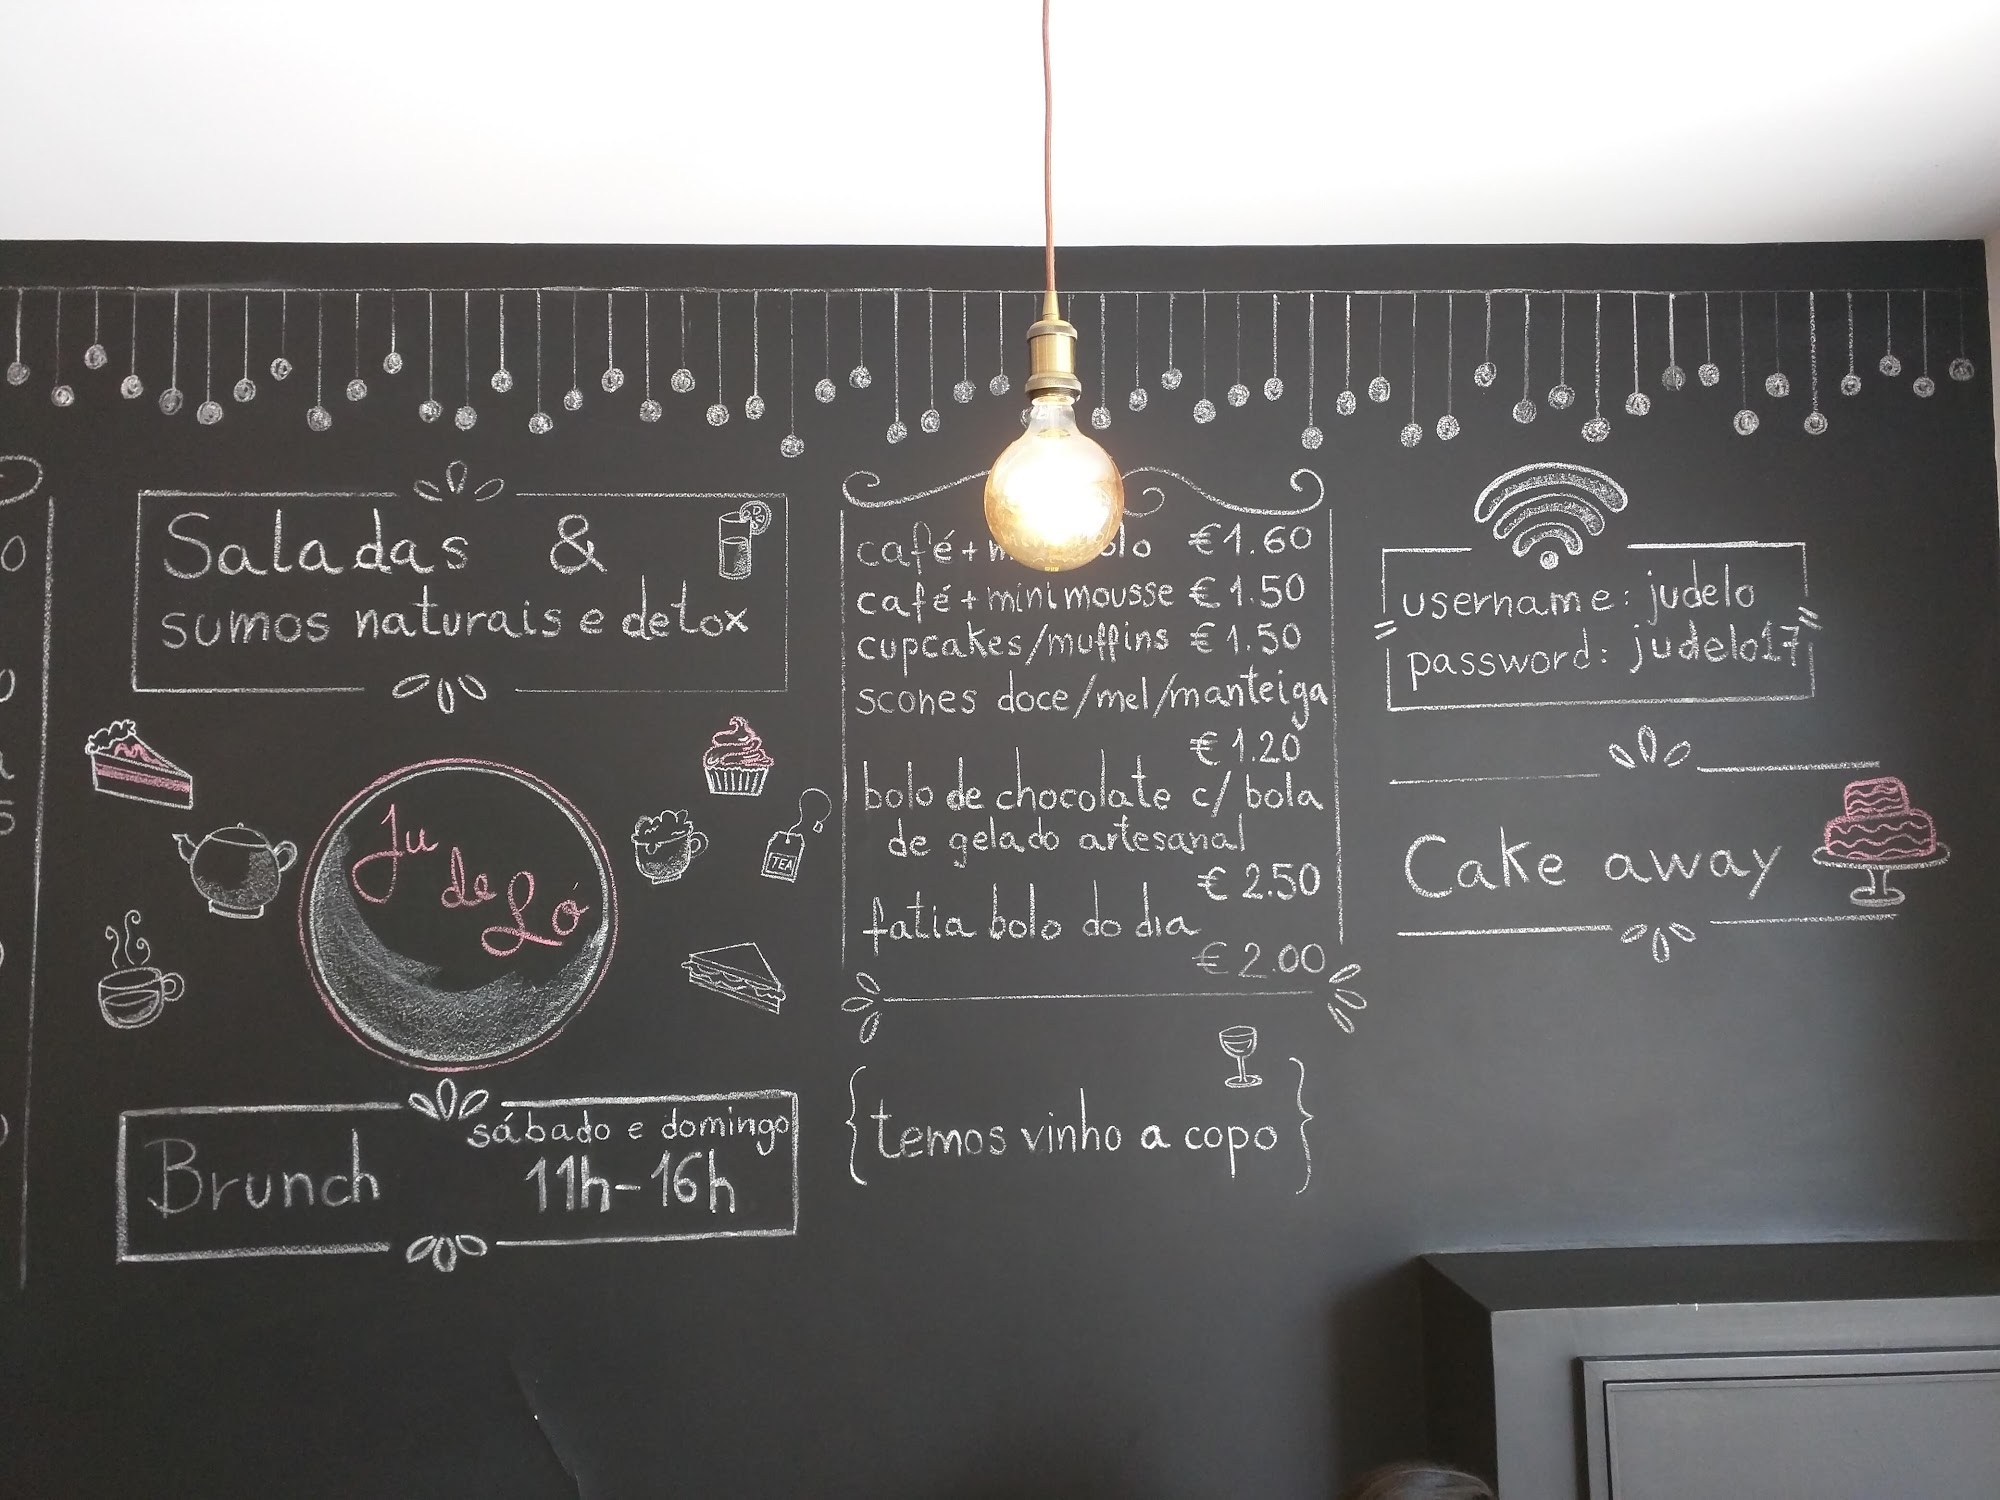 Saladas &
sumos naturais e detox
Ju
de
Ló
TEA
Brunch
sábado e domingo
11h-16h
café + €1.60
café + mini mousse €1.50
cupcakes/muffins €1.50
scones doce/mel/manteiga
€1.20
bolo de chocolate c/ bola
de gelado artesanal
€2.50
fatia bolo do dia
€2.00
{temos vinho a copo}
username: judelo
password: judelo17
Cake away